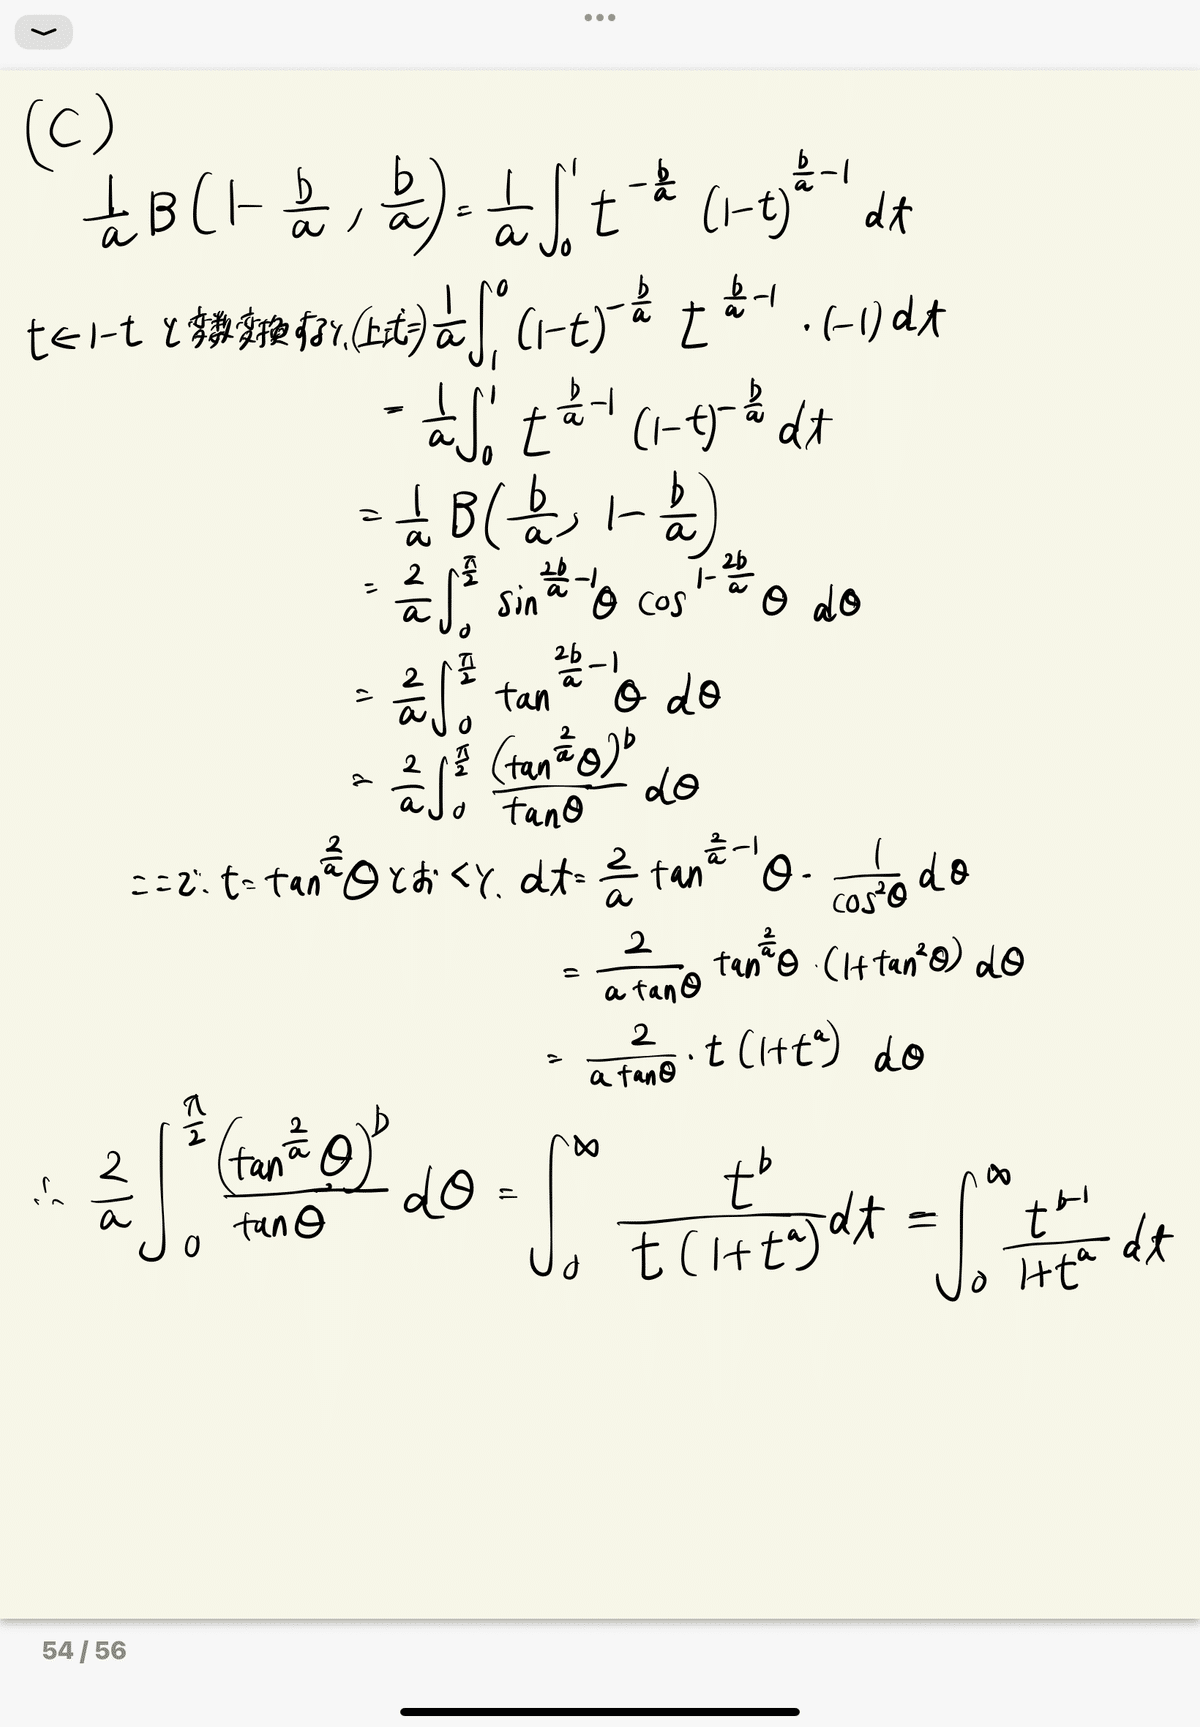 (C)
1/a B(1 - b/a, b/a) = 1/a ∫₀¹ t^(-b/a) (1-t)^(b/a - 1) dt
t←1-t と変数変換すると、(上式=) 1/a ∫₁⁰ (1-t)^(-b/a) t^(b/a - 1) · (-1) dt
= 1/a ∫₀¹ t^(b/a - 1) (1-t)^(-b/a) dt
= 1/a B(b/a, 1 - b/a)
= 2/a ∫₀^(π/2) sin^(2b/a - 1)θ cos^(1 - 2b/a)θ dθ
= 2/a ∫₀^(π/2) tan^(2b/a - 1)θ dθ
= 2/a ∫₀^(π/2) (tan^(2/a)θ)^b / tanθ dθ
ここで、t = tan^(2/a)θ とおくと、dt = 2/a tan^(2/a - 1)θ · 1/cos²θ dθ
= 2/(a tanθ) tan^(2/a)θ · (1+tan²θ) dθ
= 2/(a tanθ) · t (1+t^a) dθ
∴ 2/a ∫₀^(π/2) (tan^(2/a)θ)^b / tanθ dθ = ∫₀^∞ t^b / (t(1+t^a)) dt = ∫₀^∞ t^(b-1) / (1+t^a) dt
54 / 56